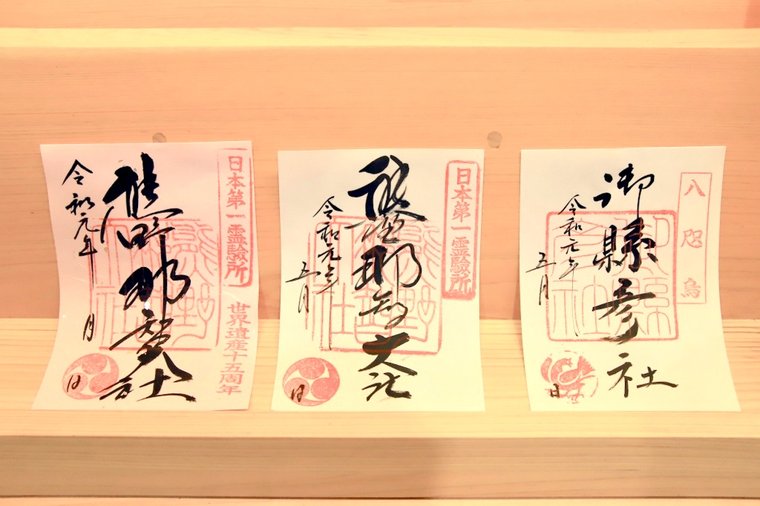 日本第一霊験所
世界遺産十五周年
熊野那智大社
令和元年
月
日
日本第一霊験所
熊野那智大社
令和元年
五月
日
八咫烏
御縣彦社
令和元年
五月
日